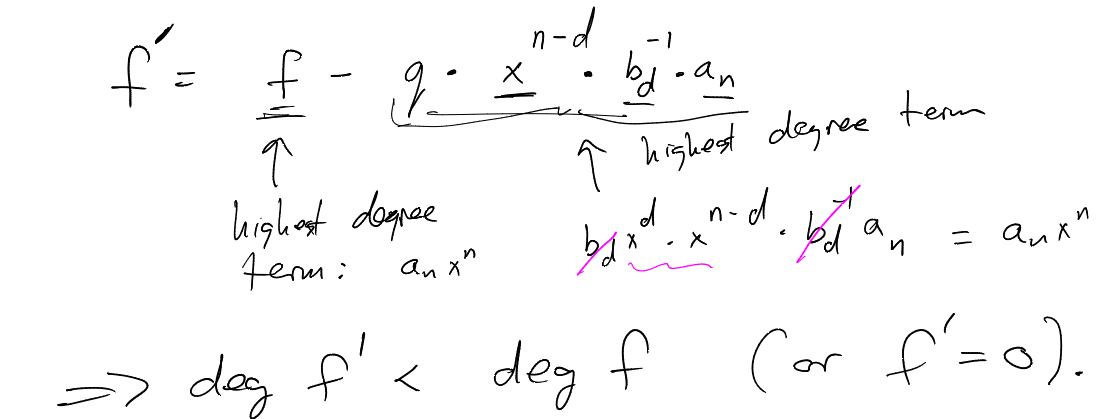 f' = f - g · x^{n-d} · b_d^{-1} · a_n
highest degree term
highest degree
term: a_n x^n
b_d x^d · x^{n-d} · b_d^{-1} a_n = a_n x^n
⇒ deg f' < deg f (or f' = 0).